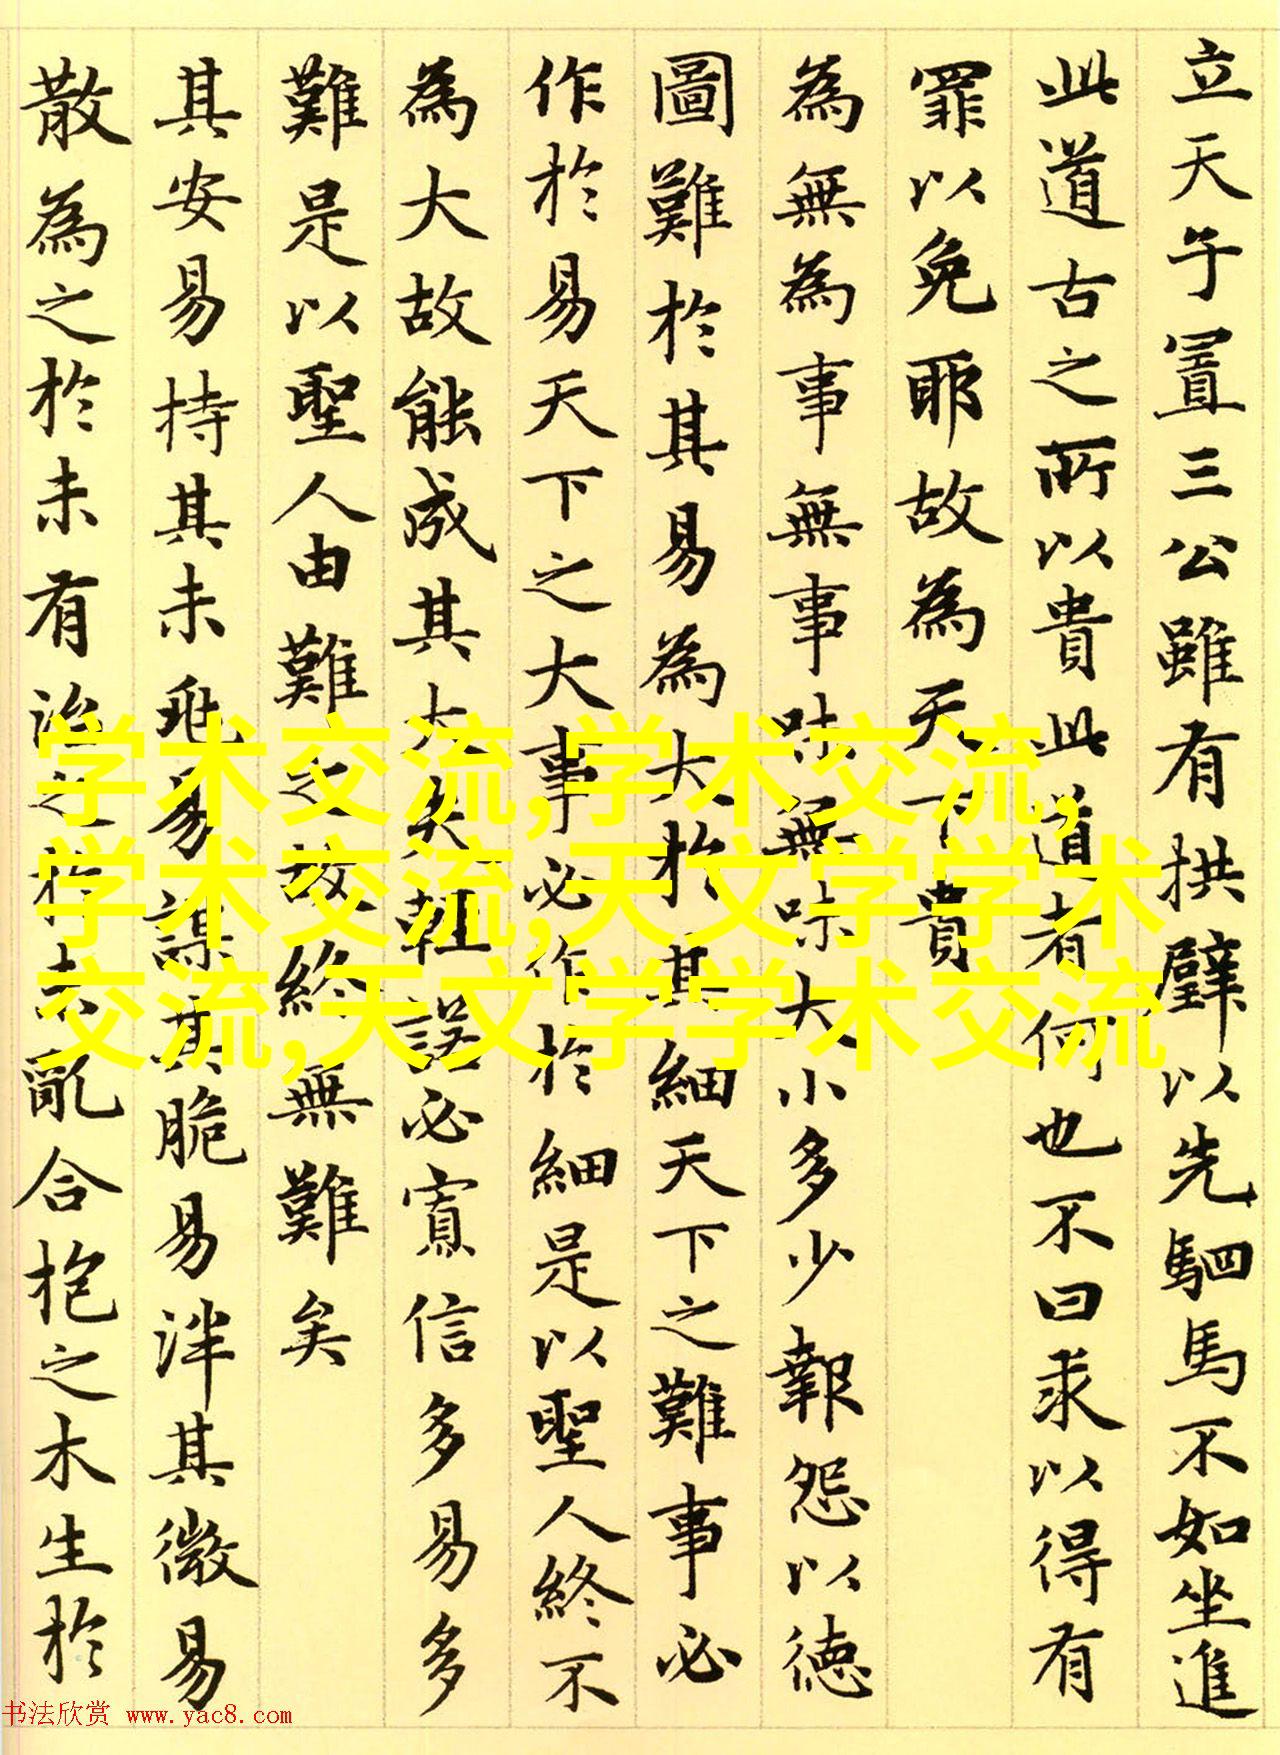 立天子置三公雖有拱璧以先駟馬不如坐進
此道古之所以貴此道者何也不曰求以得有
罪以免耶故為天下貴
為無為事無事味無味大小多少報怨以德
圖難於其易為大於其細天下之難事必
作於易天下之大事必作於細是以聖人終不
為大故能成其大夫輕諾必寡信多易多
難是以聖人由難之故終無難矣
其安易持其未兆易謀其脆易泮其微易
散為之於未有治之於未亂合抱之木生於
学术交流,学术交流,
学术交流,天文学学术
交流,天文学学术交流
书法欣赏 www.yac8.com